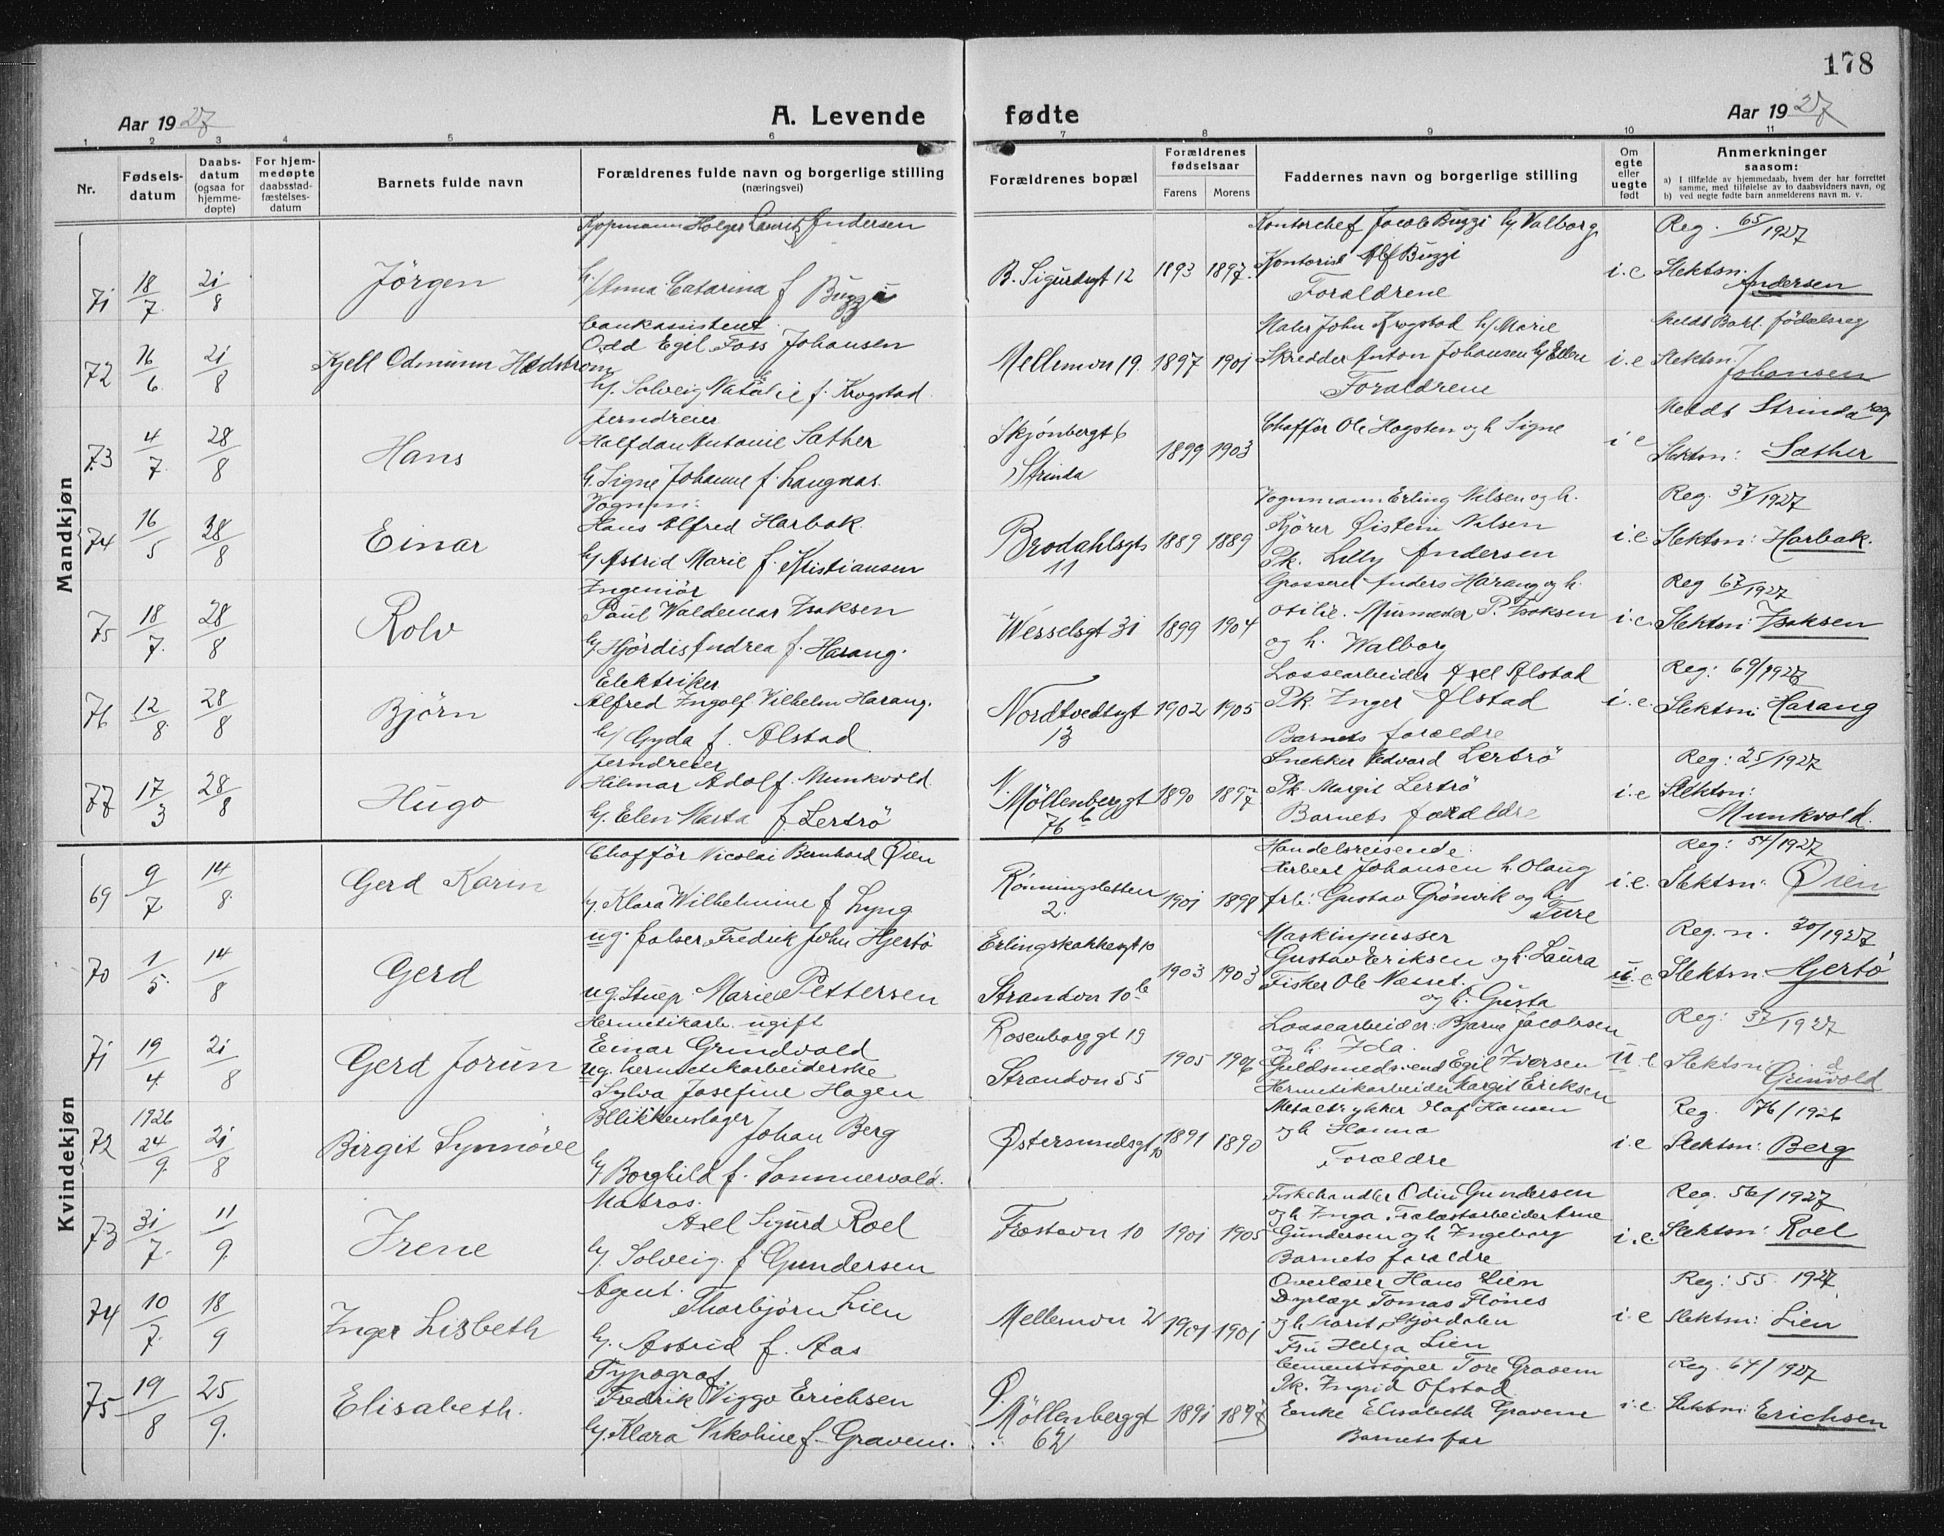 178
Aar 1927
A. Levende fødte
Aar 1927
1 2 3 4 5 6 7 8 9 10 11
Nr.
Fødsels-
datum
Daabs-
datum
(ogsaa for
hjemme-
døpte)
For hjem-
medøpte
daabsstad-
fæstelses-
datum
Barnets fulde navn
Forældrenes fulde navn og borgerlige stilling
(næringsvei)
Forældrenes bopæl
Forældrenes
fødselsaar
Farens Morens
Faddernes navn og borgerlige stilling
Om
egte
eller
uegte
født
Anmerkninger
saasom:
a) I tilfælde av hjemmedaab, hvem der har forrettet
samme, med tilføielse av to daabsvidners navn, og
b) ved uegte fødte barn anmelderens navn m. v.
Mandkjøn
71 18/7 21/8 Jörgen
Kjøpmann Holger Lauritz Andersen
h/ Anna Catarina f Buggi
B. Sigurdsgt 12 1893 1897
Kontorchef Jacob Buggi h/ Valborg
Kontorist Alf Buggi
Foraldrene
i.e
Reg. 65/1927
Slektsn:
Andersen
72 16/6 21/8 Kjell Odmunn Hedstrom
bankassistent
Odd Egil Foss Johansen
h/. Solveig Natalie f. Krogstad
Mellemvn 19. 1897 1901
Maler John Krogstad h/ Marie
Skredder Anton Johansen h/ Ellen
Foraldrene
i.e
Meldt Bakl. födselsreg
Slektsn:
Johansen
73 4/7 28/8 Hans
Jerndreier
Halfdan Antonie Sæther
h. Signe Johanne f. Langnas.
Skjönbergt 6
Strinda
1899 1903
Chaffør Ole Hogsten og h. Signe
i e
Meldt Strinda reg
Slektsn: Sæther
74 16/5 28/8 Einar
Vognm:
Hans Alfred Harbak.
h/ Astrid Marie f. Kristiansen
Brodahlsgt
11
1889 1889
Vognmann Erling Nilsen og h.
Kjörer Öistein Nilsen
Pk. Lilly Andersen
i.e
Reg. 37/1927
Slektsn: Harbak.
75 18/7. 28/8 Rolv
Ingeniör
Paul Waldemar Isaksen
h/ Hjördis Andrea f. Harang.
Wesselsgt 31 1899 1904
Grosserer Anders Harang og h.
Otilie. Murmester P. Isaksen
og h. Walborg
i.e.
Reg 67/1927
Slektsn: Isaksen
76 12/8 28/8 Björn
Elektriker
Alfred Ingolf Vilhelm Harang.
h/ Gyda f. Ølstad.
Nordtvedtsgt
13
1902 1905
Lossearbeider Axel Ølstad
Pk. Inger Ølstad
Barnets foræeldre
i.e.
Reg: 69/1927
Slektsn: Harang
77 17/3 28/8 Hugo
Jerndreier
Hilmar Adolf Munkvold
h/. Elen Marta f. Lertrö
N. Möllenberggt
76 b
1890 1897
Snekker Edvard Lertrö
Pk. Margit Lertrö
Barnets foræeldre
i.e
Reg: 25/1927
Slektsn:
Munkvold.
Kvindekjøn
69 9/7 14/8. Gerd Karin
Chafför Nicolai Bernhard Øien
h/. Klara Wilhelmine f Lyng
Rönningsletten
2.
1901 1898
Handelsreisende:
Herbert Johansen h. Olaug
Arb: Gustav Grönvik og h.
Ture
i.e.
Reg: 54/1927
Slektsn: Øien
70 1/5. 14/8 Gerd
ug. falser Fredrik John Hjertö
ug. Stuep. Marie Pettersen
Erlingskakkesgt 10
Strandvn 10 b
1903 1903
Maskinpusser
Gustav Eriksen og h. Laura
Fisker Ole Næsset.
og h. Gusta
u. e
Reg. n. 30/1927
Slektsn: Hjertö
71 19/4. 21/8 Gerd Jorun
Hermetikarb. ugift
Einar Grindvold
ug. hermetikarbeiderske
Sylva Josefine Hagen
Rosenborggt 19
Strandvn 55
1905 1906
Lossearbeider: Bjarne Jacobsen
og h. Ida.
Guldsmedsvend Egil Iversen
Hermetikarbeider Margit Eriksen
u. e
Reg: 37/1927
Slektsn:
Grindvold
72 1926 24/9. 21/8 Birgit Synnöve
Blikkenslager
Johan Berg
h/ Borghild f. Sommervold.
Østersundsgt 10 1891 1890
Metaltrykker Olaf Hansen
og h Hanna
Foræeldre
i e
Reg. 76/1926
Slektsn: Berg
73 31/7. 11/9. Irene
Matros.
Axel Sigurd Roel
h/. Solveig f Gundersen
Frostavn 10 1901 1905
Fiskehandler Odin Gundersen
og h. Inga. Trælastarbeider Arne
Gundersen og h Ingeborg
Barnets foraldre
i.e.
Reg. 56/1927
Slektsn: Roel
74 10/7. 18/9 Inger Lisbeth
Agent.
Thorbjörn Lien
h/. Astrid f. Aas
Mellemvn 2 1901 1901
Overlærer Hans Lien
Dyrlæge Tomas Flönes
og h Marit, Stjördalen
Fru Helga Lien
i e
Reg: 55. 1927.
Slektsn: Lien
75 19/8 25/9. Elisabeth.
Typograf.
Fredrik Viggo Erichsen
h/. Klara Nikoline f. Gravem.
Ø.
Möllenberggt
62
1891 1897
Cementstöper Tore Gravem
Pk. Ingrid Ofstad
Enke Elisabeth Gravem
Barnets far
i.e.
Reg. 64/1927
Slektsn: Erichsen